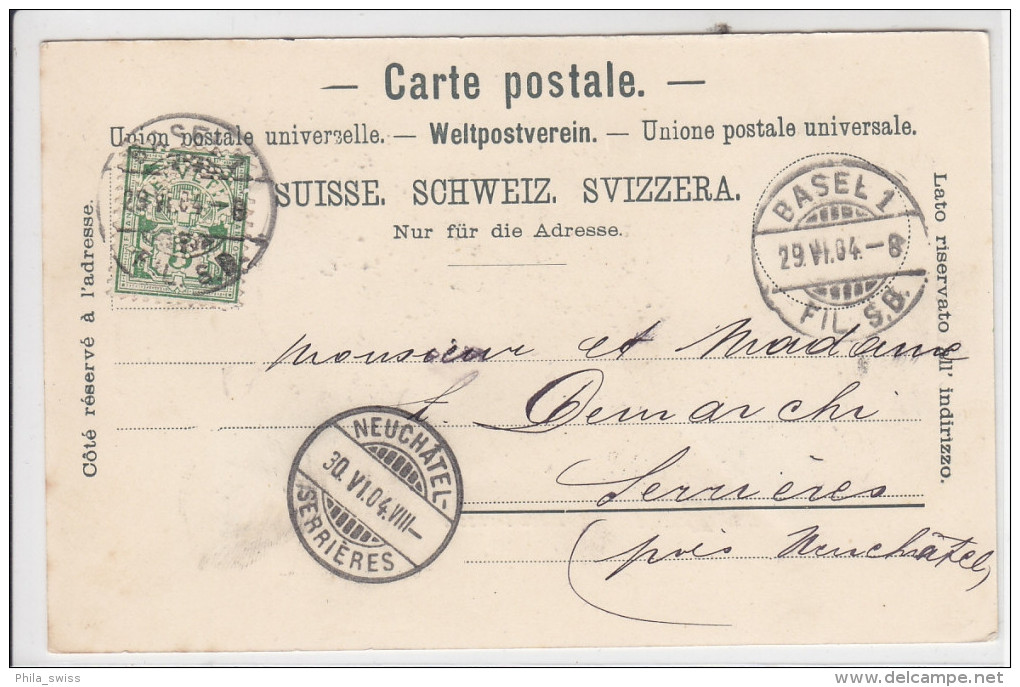 — Carte postale. —
Union postale universelle. — Weltpostverein. — Unione postale universale.
SUISSE. SCHWEIZ. SVIZZERA.
Nur für die Adresse.
Côté réservé à l'adresse.
Lato riservato all' indirizzo.
29.VI.04
BASEL 1
29.VI.04.-8
FIL. S.B.
Monsieur et Madame
Demarchi
Serrières
(près Neuchâtel)
NEUCHÂTEL-
30.VI.04.VIII-
SERRIÈRES
Phila_swiss
www.delcampe.net